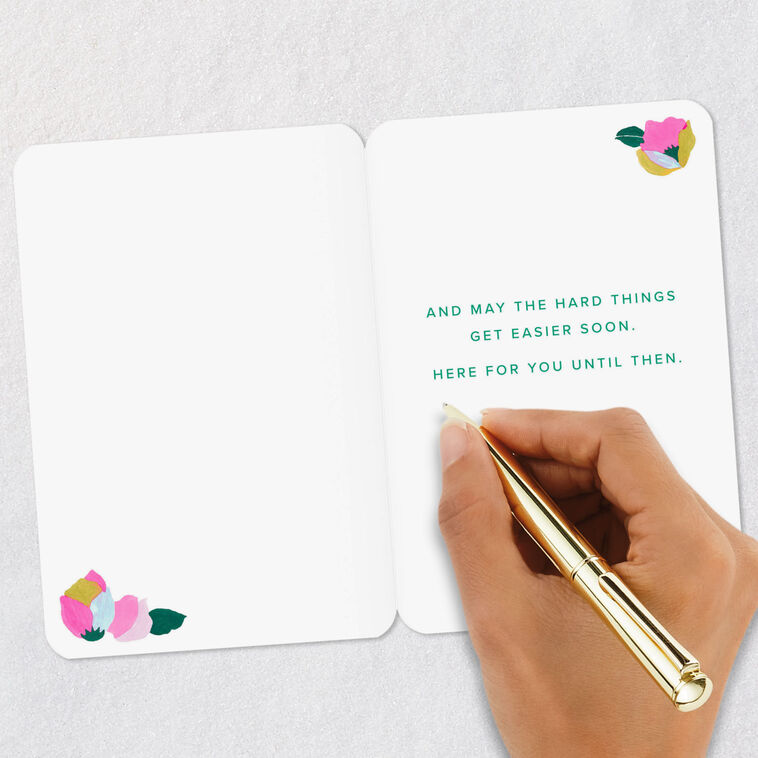 AND MAY THE HARD THINGS
GET EASIER SOON.
HERE FOR YOU UNTIL THEN.